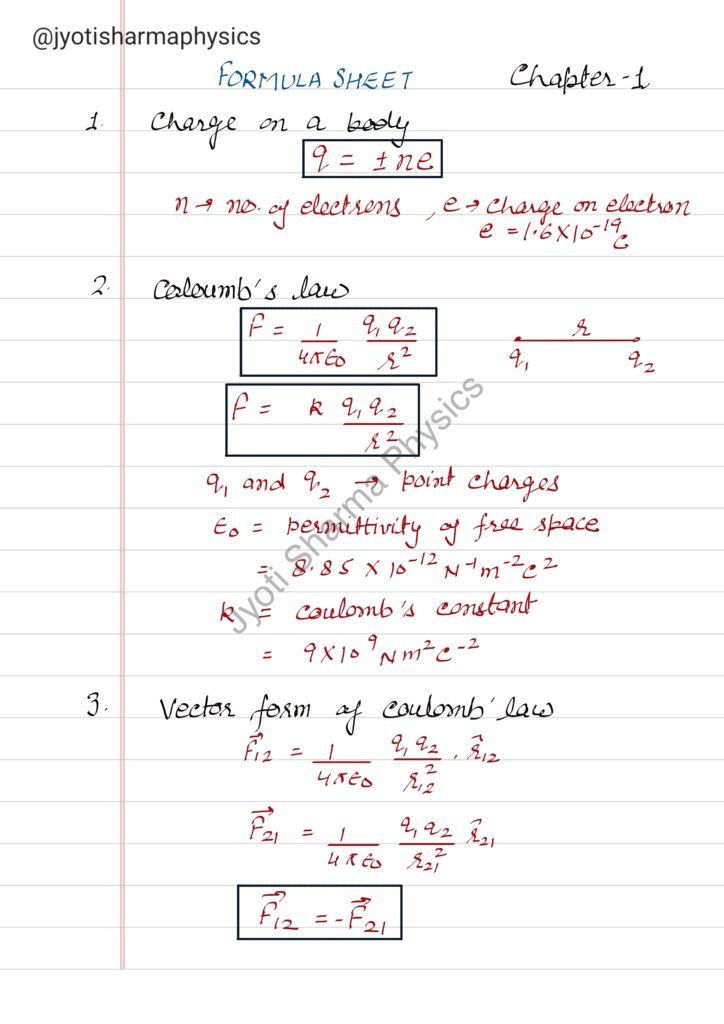 @jyotisharmaphysics
FORMULA SHEET Chapter-1
1. Charge on a body
q = ±ne
n → no. of electrons , e → charge on electron
e = 1.6×10⁻¹⁹C
2. Coloumb's law
F = 1/4πε₀ q₁q₂/r²
r
q₁ q₂
F = k q₁q₂/r²
q₁ and q₂ → point charges
ε₀ = permittivity of free space
= 8.85 × 10⁻¹² N⁻¹m⁻²C²
k = coulomb's constant
= 9×10⁹ Nm²C⁻²
3. Vector form of coulomb' law
F⃗₁₂ = 1/4πε₀ q₁q₂/r₁₂² . r̂₁₂
F⃗₂₁ = 1/4πε₀ q₁q₂/r₂₁² r̂₂₁
F⃗₁₂ = -F⃗₂₁
Jyoti Sharma Physics